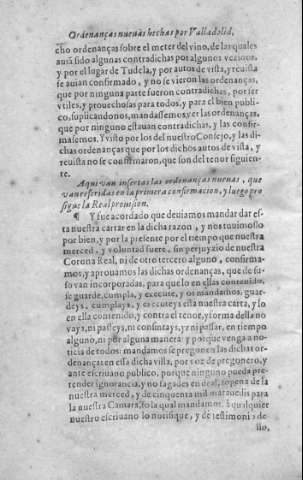 Ordenanças nueuas hechas por Valladolid,
cho ordenanças sobre el meter del vino, de las quales
auia sido algunas contradichas por algunos vezinos,
y por el lugar de Tudela, y por autos de vista, y reuista
se auian confirmado, y no se vieron las ordenanças,
que por ninguna parte fueron contradichas, por ser
vtiles, y prouechosas para todos, y para el bien publi-
co, suplicandonos, mandassemos, ver las ordenanças,
que por ninguno estauan contradichas, y las confir-
massemos. Y visto por los del nuestro Consejo, y las di-
chas ordenanças que por los dichos autos de vista, y
reuista no se confirmaron, que son del tenor siguien-
te.
Aqui van insertas las ordenanças nueuas, que
van referidas en la primera confirmacion, y luego pro
sigue la Real prouision.
¶ Y fue acordado que deuiamos mandar dar es-
ta nuestra carta en la dicha razon, y nos tuuimoslo
por bien, y por la presente por el tiempo que nuestra
merced, y voluntad fuere, sin perjuyzio de nuestra
Corona Real, ni de otro tercero alguno, confirma-
mos, y aprouamos las dichas ordenanças, que de su-
so van incorporadas, para que lo en ellas contenido,
se guarde, cumpla, y execute, y os mandamos, guar-
deys, cumplays, y executeys esta nuestra carta, y lo
en ella contenido, y contra el tenor, y forma della no
vays, ni passeys, ni consintays, yr, ni passar, en tiempo
alguno, ni por alguna manera: y porque venga a no-
ticia de todos: mandamos se pregonen las dichas or-
denanças en essa dicha villa, por voz de pregonero, y
ante escriuano publico, porque ninguno pueda pre-
tender ignorancia, y no fagades en de al, so pena de la
nuestra merced, y de cinquenta mil marauedis para
la nuestra Camara, so la qual mandamos, a qualquier
nuestro escriuano lo notifique, y de testimonio de
llo,